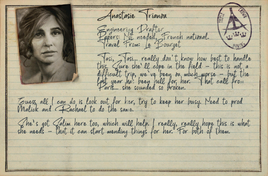 Anastasie Trianon
Engineering Drafter
Papers: No needed, French national
Travel From: Le Bourget
Tass, Tass, really don't know how best to handle
this. Sure she'll cope in the field - this is not a
difficult trip, we've been on much worse - but the
last year has been full for her. That call from
Paris... she sounded so broken.
Guess all I can do is look out for her, try to keep her busy. Need to prod
Maliuk and Rachael to do the same.
She's got Selim here too, which will help. I really, really hope this is what
she needs - that it can start mending things for her. For both of them.